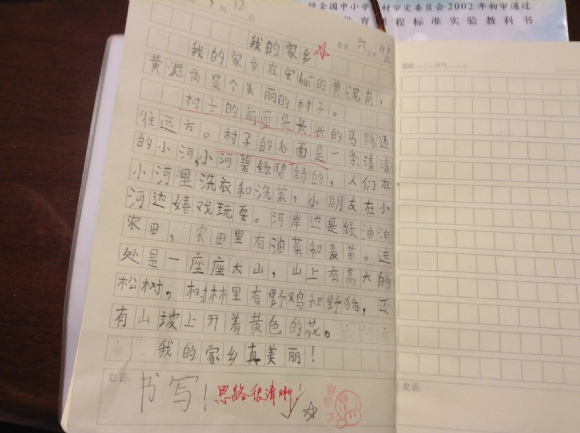 经全国中小学教材审定委员会2002年初审通过
教育课程标准实验教科书
月12日
我的家乡
我的家乡在安hui的黄泥岗,
黄泥岗是个美丽的村子。
村子的前面是长长的马路通
往远方。村子的右面是一条清清
的小河,小河碧绿碧绿的,人们在
小河里洗衣和洗菜,小朋友在小
河边嬉戏玩耍。河岸边是绿油油
农田,农田里有油菜和麦苗。远
处是一座座大山,山上有高大的
松树。树林里有野鸡和野猪,还
有山坡上开着黄色的花。
我的家乡真美丽!
批语:
书写!思路很清晰!
批语: